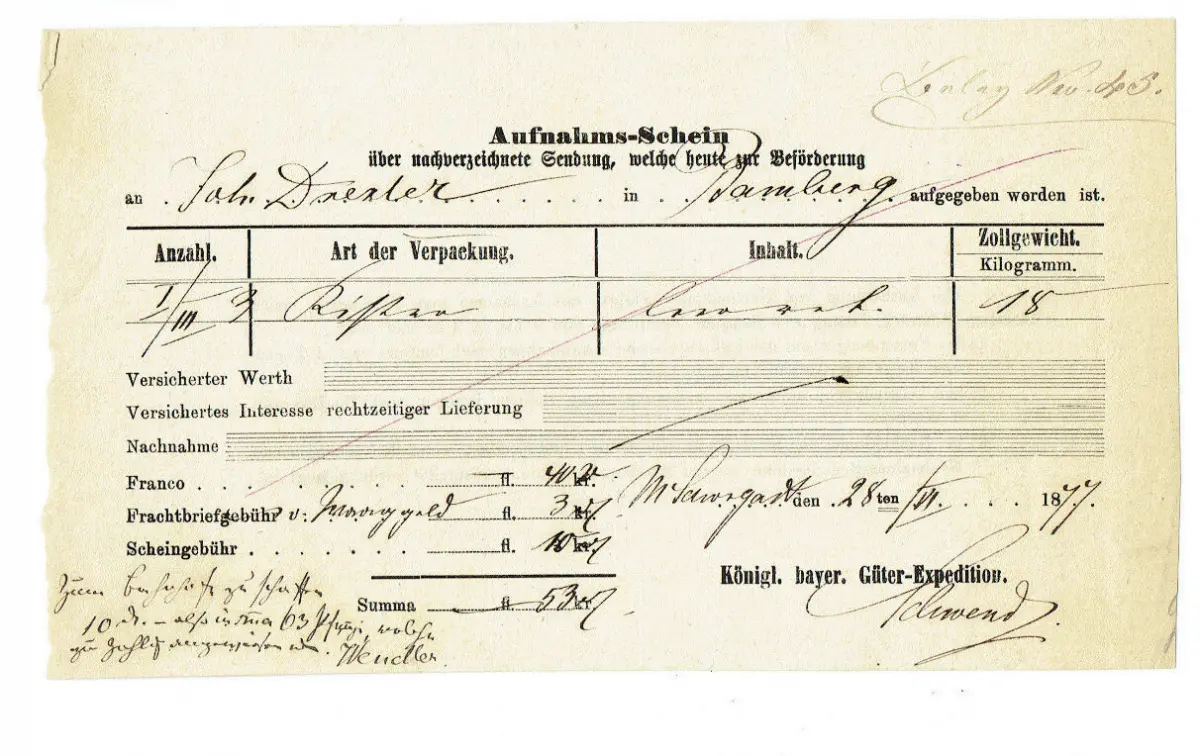 Beleg Nro. 45.
Aufnahms-Schein
über nachverzeichnete Sendung, welche heute zur Beförderung
an Joh. Drexler in Bamberg aufgegeben worden ist.
Anzahl. Art der Verpackung. Inhalt. Zollgewicht.
Kilogramm.
I/III 3 Kisten leer ret. 18
Versicherter Werth
Versichertes Interesse rechtzeitiger Lieferung
Nachnahme
Franco fl. 40 kr.
Frachtbriefgebühr u. Waaggeld fl. 3 kr. den 28ten/VI. 1877.
Scheingebühr fl. 10 kr.
Königl. bayer. Güter-Expedition.
Summa fl. 53 kr.
Schwend
zum Bahnhofe zu schaffen
10 d. – also in Sma 63 Pfennig, welche
zu
Wendler